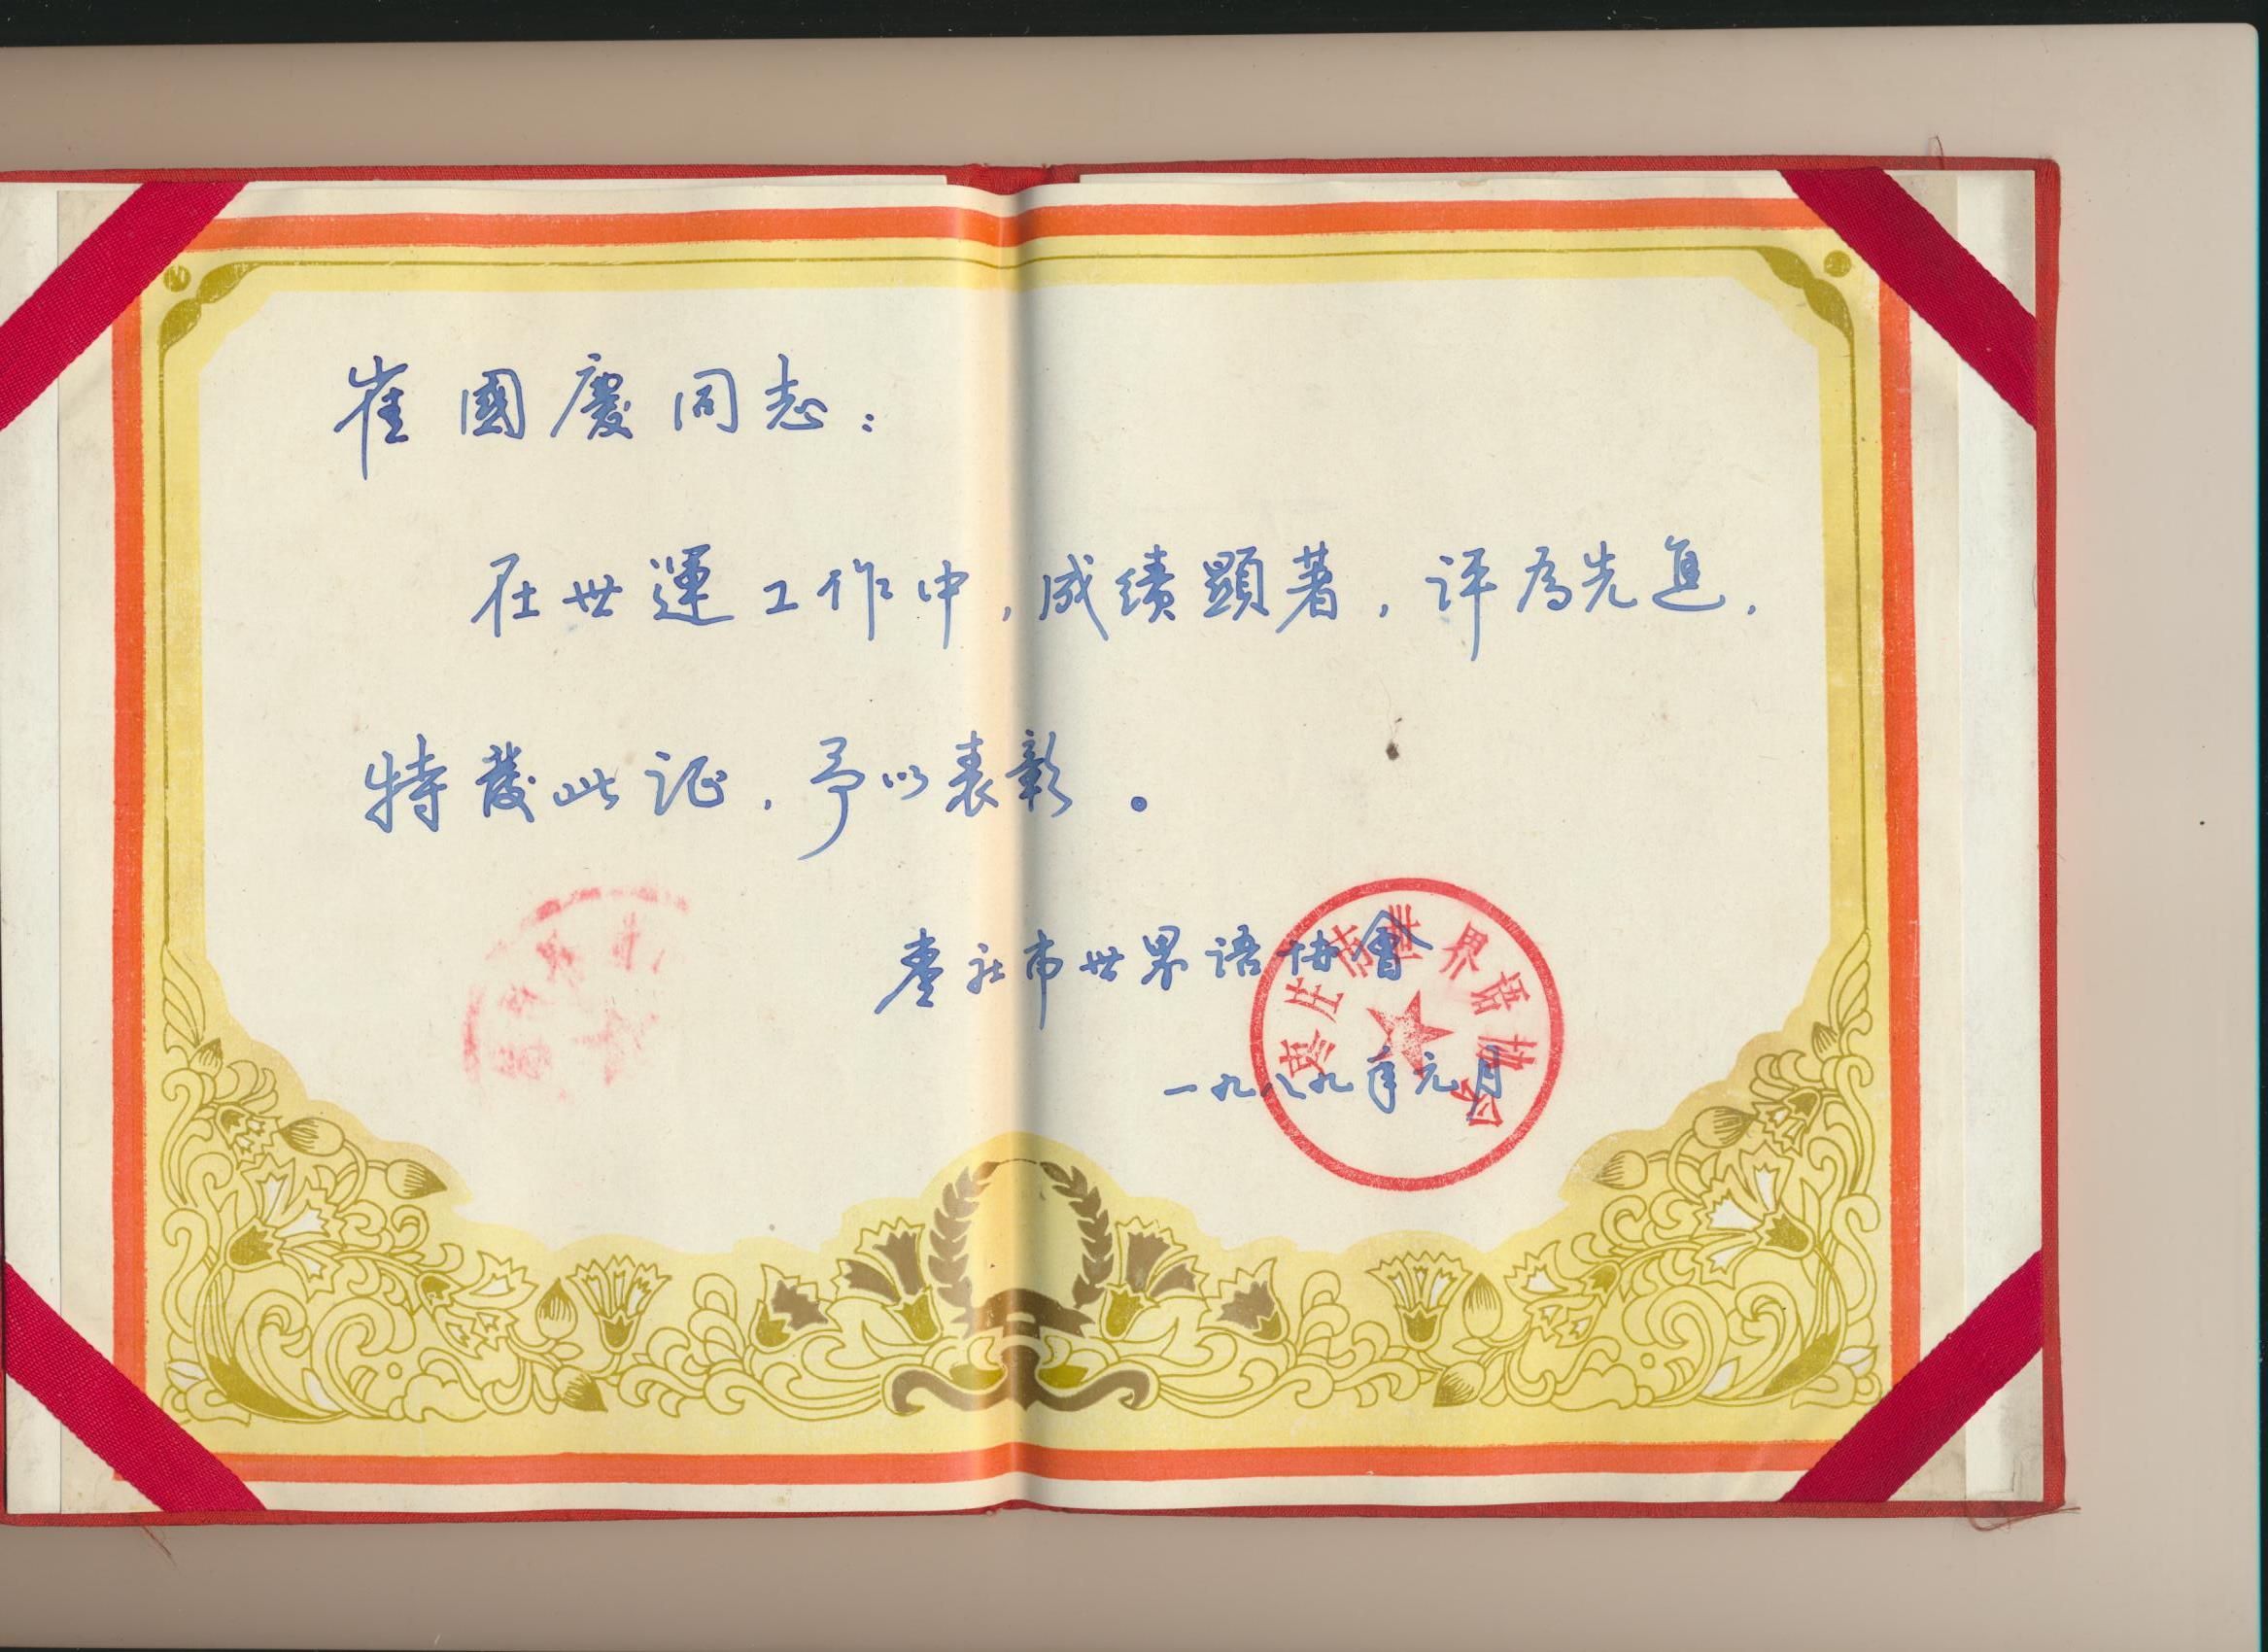 崔國慶同志：
在世運工作中，成绩顯著，评為先進，
特發此证，予以表彰。
枣庄市世界语协會
一九八九年元月
枣庄市世界语协会